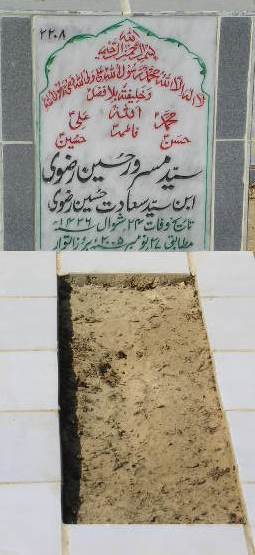 ۲۲۰۸
بسم اللہ الرحمن الرحیم
لا الہ الا اللہ محمد رسول اللہ علی ولی اللہ
وخلیفتہ بلا فصل
محمد اللہ علی
حسن فاطمہ حسین
سید مسرور حسین رضوی
ابن سید سعادت حسین رضوی
تاریخ وفات ۲۴ شوال ۱۴۲۶ھ
مطابق ۲۷ نومبر ۲۰۰۵ بروز اتوار